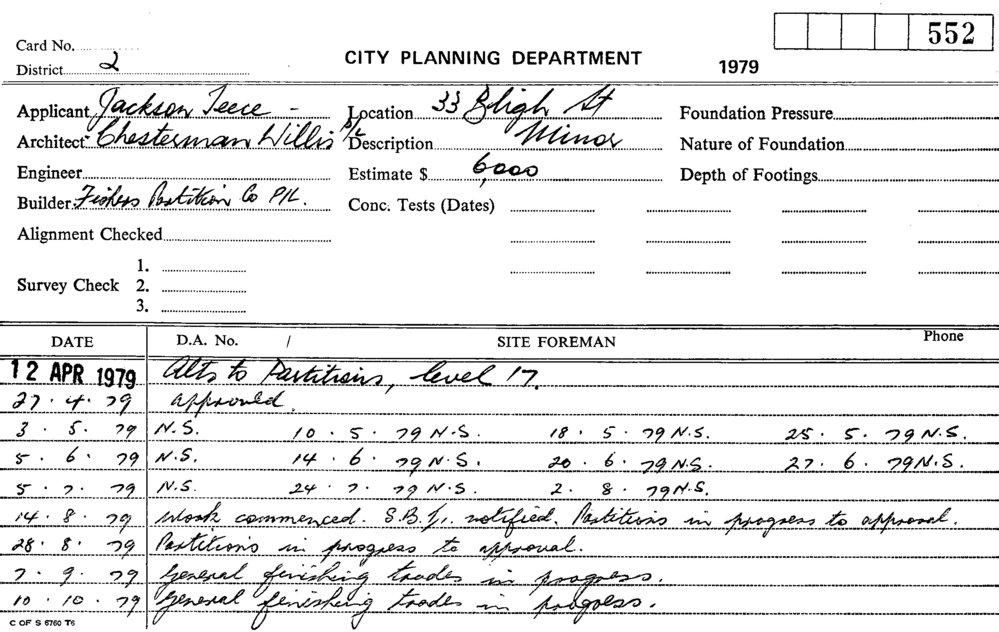 552
Card No.
District 2
CITY PLANNING DEPARTMENT 1979
Applicant Jackson Teece - Location 33 Bligh St Foundation Pressure
Architect Chesterman Willis P/L Description Minor Nature of Foundation
Engineer Estimate $ 6,000 Depth of Footings
Builder Fishers Partition Co P/L. Conc. Tests (Dates)
Alignment Checked
1.
Survey Check 2.
3.
DATE D.A. No. / SITE FOREMAN Phone
12 APR 1979 Alts to Partitions, level 17.
27.4.79 approved.
3.5.79 N.S. 10.5.79 N.S. 18.5.79 N.S. 25.5.79 N.S.
5.6.79 N.S. 14.6.79 N.S. 20.6.79 N.S. 27.6.79 N.S.
5.7.79 N.S. 24.7.79 N.S. 2.8.79 N.S.
14.8.79 Work commenced. notified. Partitions in progress to approval.
28.8.79 Partitions in progress to approval.
7.9.79 General finishing trades in progress.
10.10.79 General finishing trades in progress.
C OF S 6760 T6